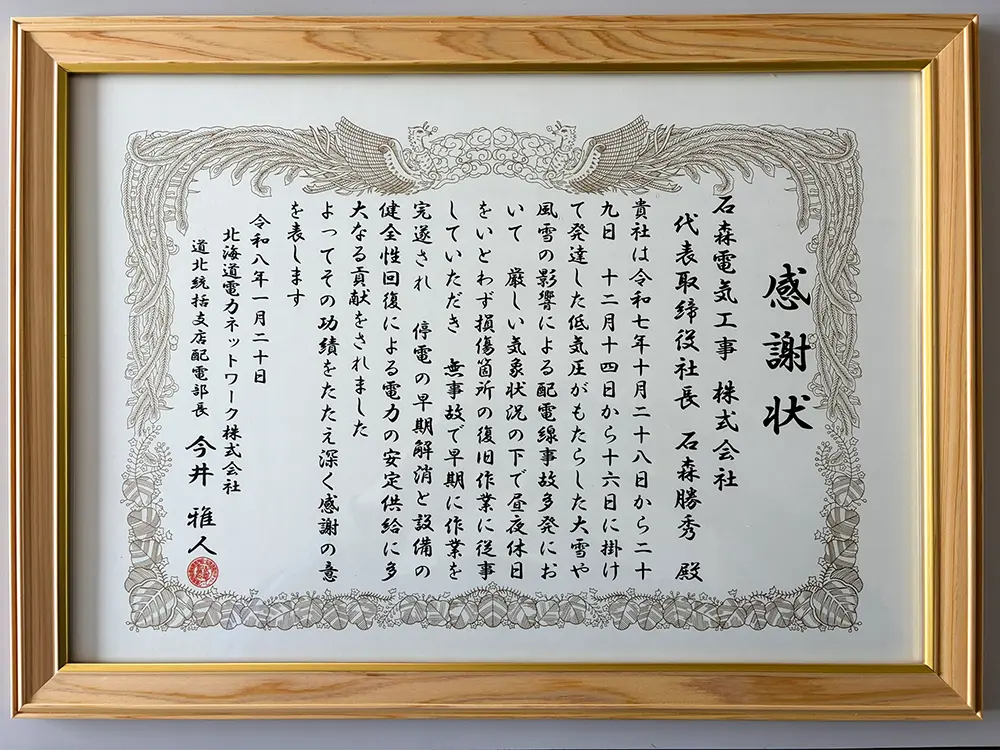 感謝状
石森電気工事　株式会社
代表取締役社長　石森勝秀　殿
貴社は令和七年十月二十八日から二十
九日　十二月十四日から十六日に掛け
て発達した低気圧がもたらした大雪や
風雪の影響による配電線事故多発にお
いて　厳しい気象状況の下で昼夜休日
をいとわず損傷箇所の復旧作業に従事
していただき　無事故で早期に作業を
完遂され　停電の早期解消と設備の
健全性回復による電力の安定供給に多
大なる貢献をされました
よってその功績をたたえ深く感謝の意
を表します
令和八年一月二十日
北海道電力ネットワーク株式会社
道北統括支店配電部長　今井　雅人